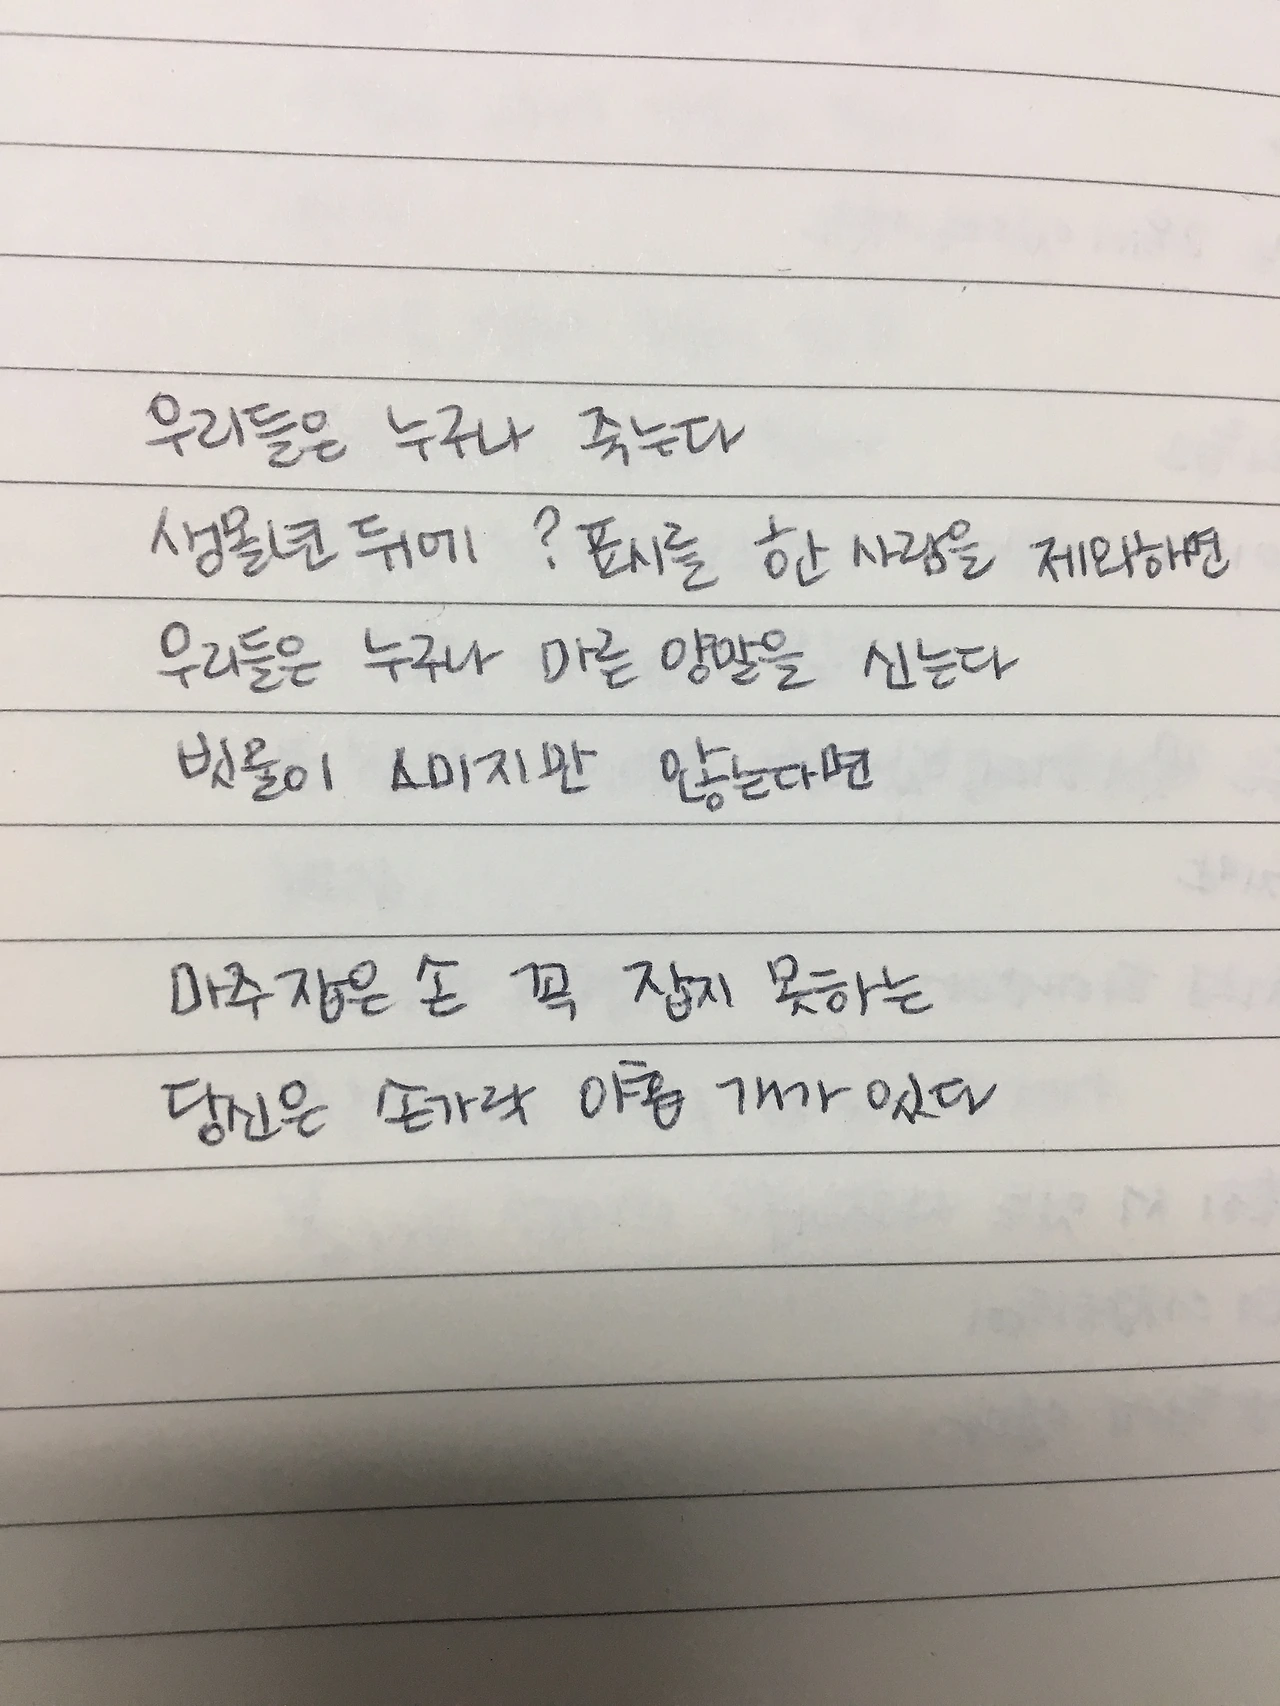 우리들은 누구나 죽는다
생몰년 뒤에 ? 표시를 한 사람을 제외하면
우리들은 누구나 마른 양말을 신는다
빗물이 스미지만 않는다면
마주 잡은 손 꼭 잡지 못하는
당신은 손가락 아홉 개가 있다